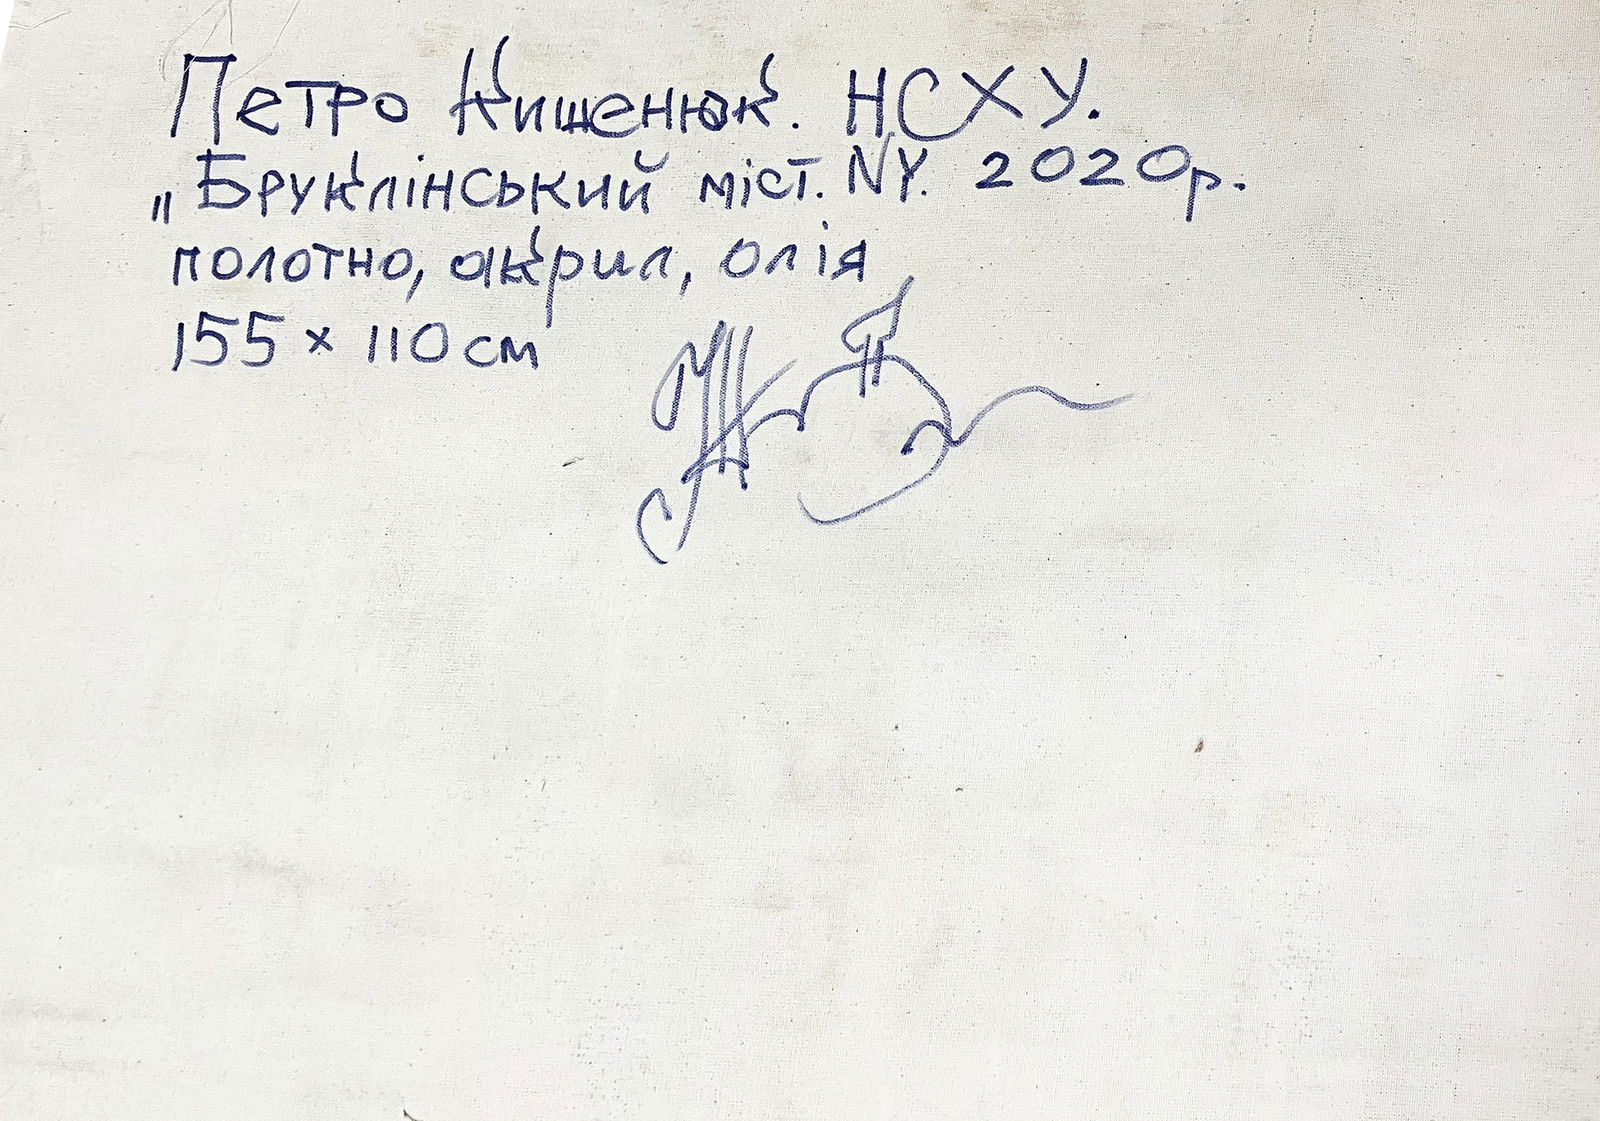 Петро Кишенюк. НСХУ.
„Бруклінський міст. NY. 2020р.
полотно, акрил, олія
155 × 110 см